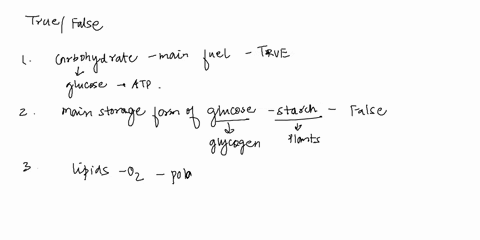 True/False
1. Carbohydrate - main fuel - TRUE
↓
glucose → ATP.
2. main storage form of glucose - starch - False
↓ ↓
glycogen Plants
3. lipids - O2 - pola